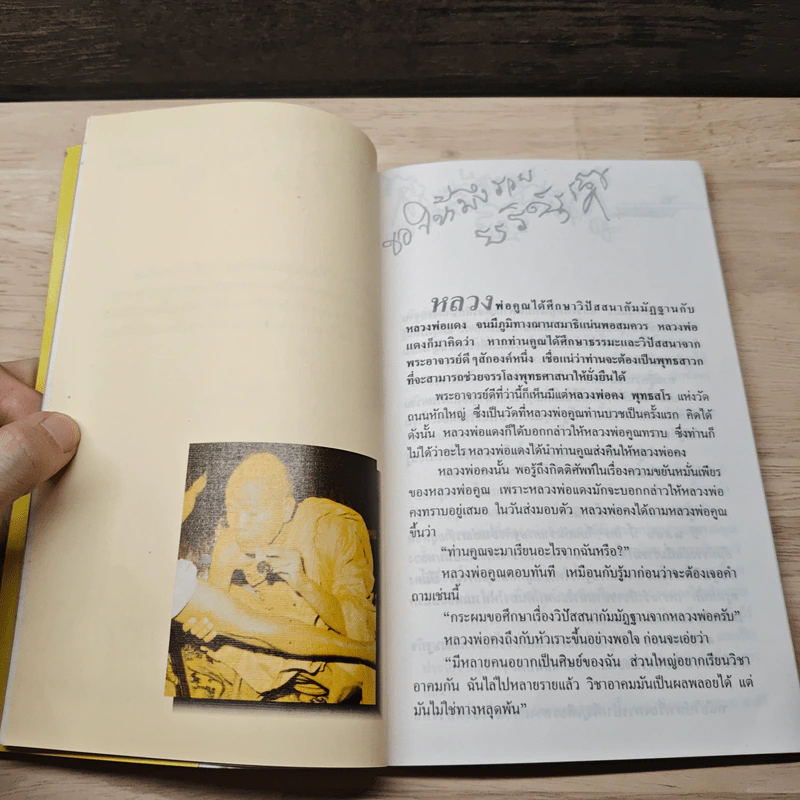 ขอให้มึงรวย
หลวงพ่อคูณได้ศึกษาวิปัสสนากัมมัฏฐานกับ
หลวงพ่อแดง จนมีภูมิทางฌานสมาธิแน่นพอสมควร หลวงพ่อ
แดงก็มาคิดว่า หากท่านคูณได้ศึกษาธรรมะและวิปัสสนาจาก
พระอาจารย์ดีๆสักองค์หนึ่ง เชื่อแน่ว่าท่านจะต้องเป็นพุทธสาวก
ที่จะสามารถช่วยจรรโลงพุทธศาสนาให้ยั่งยืนได้
พระอาจารย์ดีที่ว่านี้ก็เห็นมีแต่หลวงพ่อคง พุทธสโร แห่งวัด
ถนนหักใหญ่ ซึ่งเป็นวัดที่หลวงพ่อคูณท่านบวชเป็นครั้งแรก คิดได้
ดังนั้น หลวงพ่อแดงก็ได้บอกกล่าวให้หลวงพ่อคูณทราบ ซึ่งท่านก็
ไม่ได้ว่าอะไร หลวงพ่อแดงได้นำท่านคูณส่งคืนให้หลวงพ่อคง
หลวงพ่อคงนั้น พอรู้ถึงกิตติศัพท์ในเรื่องความขยันหมั่นเพียร
ของหลวงพ่อคูณ เพราะหลวงพ่อแดงมักจะบอกกล่าวให้หลวงพ่อ
คงทราบอยู่เสมอ ในวันส่งมอบตัว หลวงพ่อคงได้ถามหลวงพ่อคูณ
ขึ้นว่า
“ท่านคูณจะมาเรียนอะไรจากฉันหรือ?”
หลวงพ่อคูณตอบทันที เหมือนกับรู้มาก่อนว่าจะต้องเจอคำ
ถามเช่นนี้
“กระผมขอศึกษาเรื่องวิปัสสนากัมมัฏฐานจากหลวงพ่อครับ”
หลวงพ่อคงถึงกับหัวเราะขึ้นอย่างพอใจ ก่อนจะเอ่ยว่า
“มีหลายคนอยากเป็นศิษย์ของฉัน ส่วนใหญ่อยากเรียนวิชา
อาคมกัน ฉันไล่ไปหลายรายแล้ว วิชาอาคมมันเป็นผลพลอยได้ แต่
มันไม่ใช่ทางหลุดพ้น”